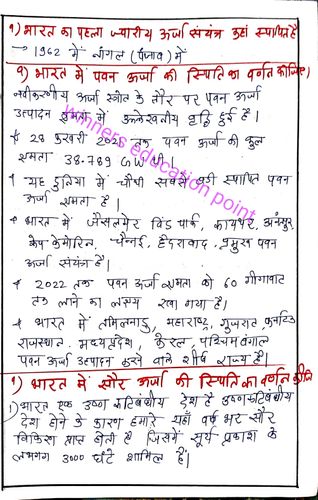 १) भारत का पहला ज्वारीय ऊर्जा संयंत्र कहां स्थापित है
→ 1962 में नांगल (पंजाब) में
१) भारत में पवन ऊर्जा की स्थिति का वर्णन कीजिए
नवीकरणीय ऊर्जा स्रोत के तौर पर पवन ऊर्जा
उत्पादन क्षमता में उल्लेखनीय वृद्धि हुई है।
28 फरवरी 2021 तक पवन ऊर्जा की कुल
क्षमता 38.789 GW थी।
यह दुनिया में चौथी सबसे बड़ी स्थापित पवन
ऊर्जा क्षमता है।
भारत में जैसलमेर विंड पार्क, कायथर,
केप केमोरिन, चेन्नई, हैदराबाद प्रमुख पवन
ऊर्जा संयंत्र हैं।
2022 तक पवन ऊर्जा क्षमता को 60 गीगावाट
तक लाने का लक्ष्य रखा गया है।
भारत में तमिलनाडु, महाराष्ट्र, गुजरात, कर्नाटक
राजस्थान, मध्यप्रदेश, केरल, पश्चिम बंगाल
पवन ऊर्जा उत्पादन करने वाले शीर्ष राज्य है।
१) भारत में सौर ऊर्जा की स्थिति का वर्णन कीजिए
1) भारत एक उष्ण कटिबंधीय देश है उष्णकटिबंधीय
देश होने के कारण हमारे यहाँ वर्ष भर सौर
विकिरण प्राप्त होती है जिसमें सूर्य प्रकाश के
लगभग 3000 घंटे शामिल हैं।
winners education point